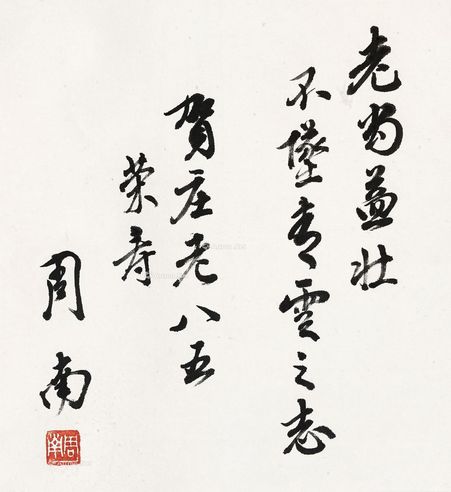 老当益壮
不墜青雲之志
贺庄老八五
荣寿
周南
周南